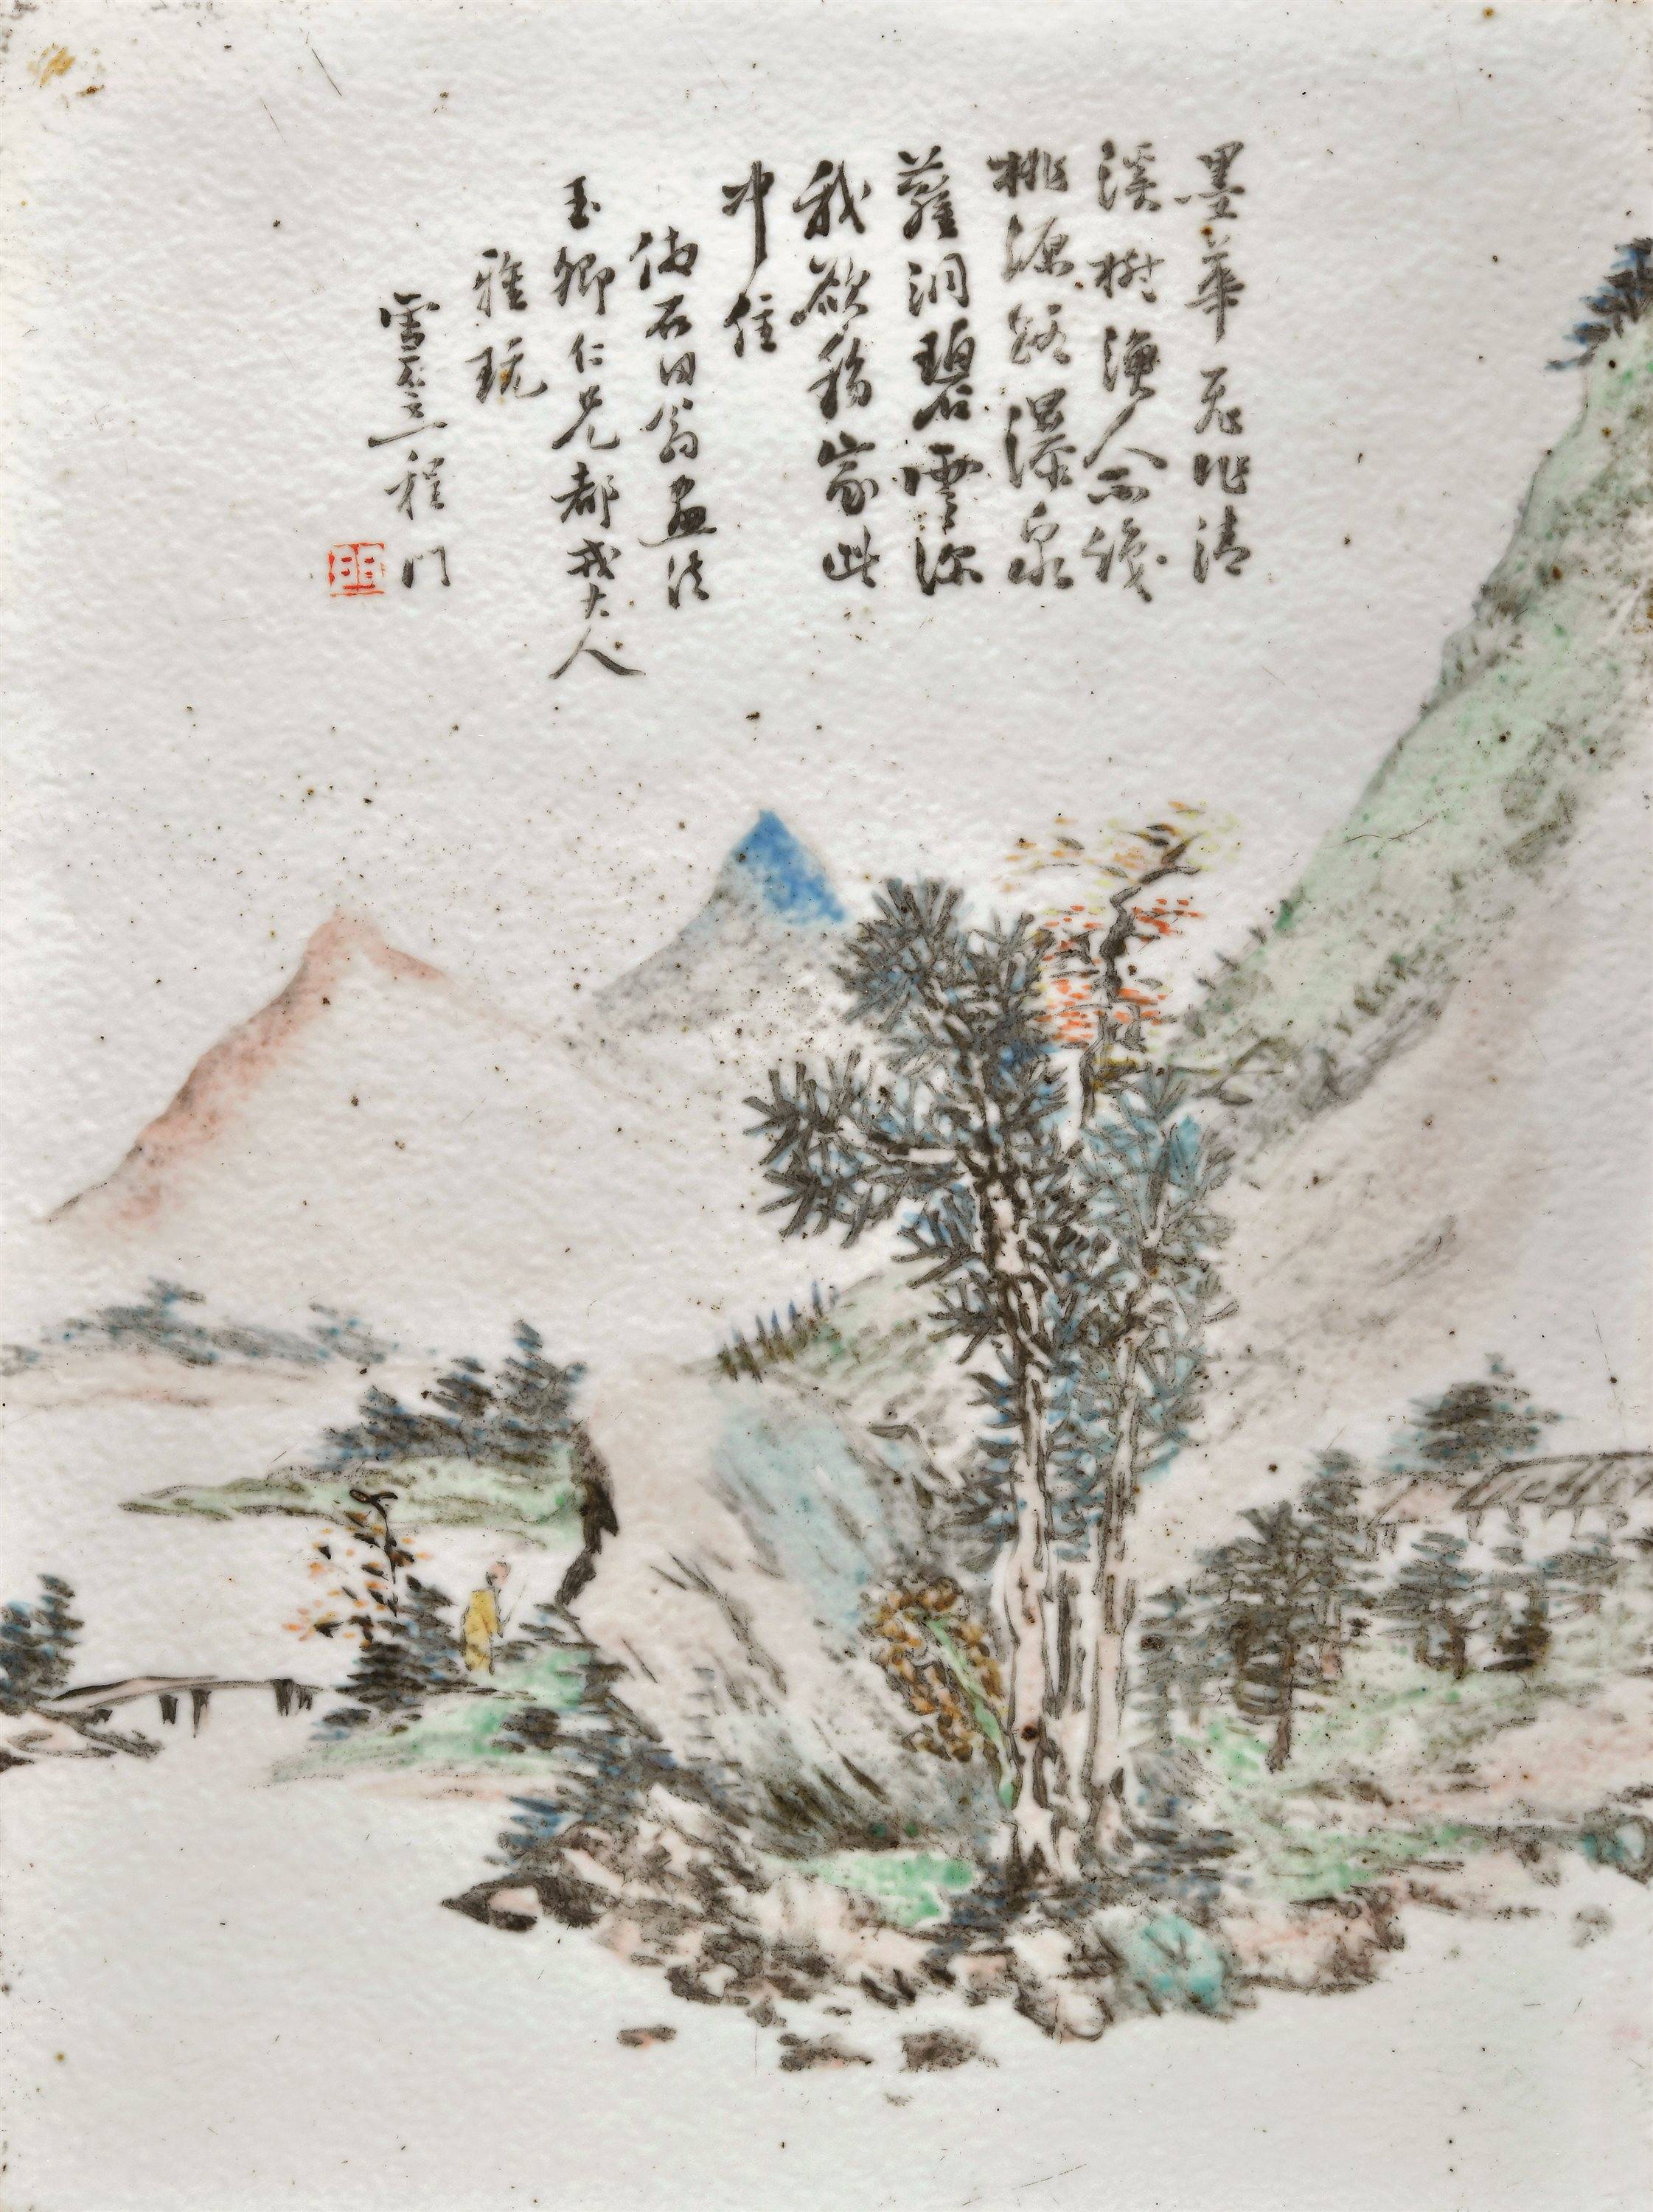 墨華飛作清
溪樹漁人不識
桃源路瀑泉
蘿洞碧雲深
我欲移家此
中住
仿石田翁畫法
玉卿仁兄都戎大人
雅玩
雪笠程門